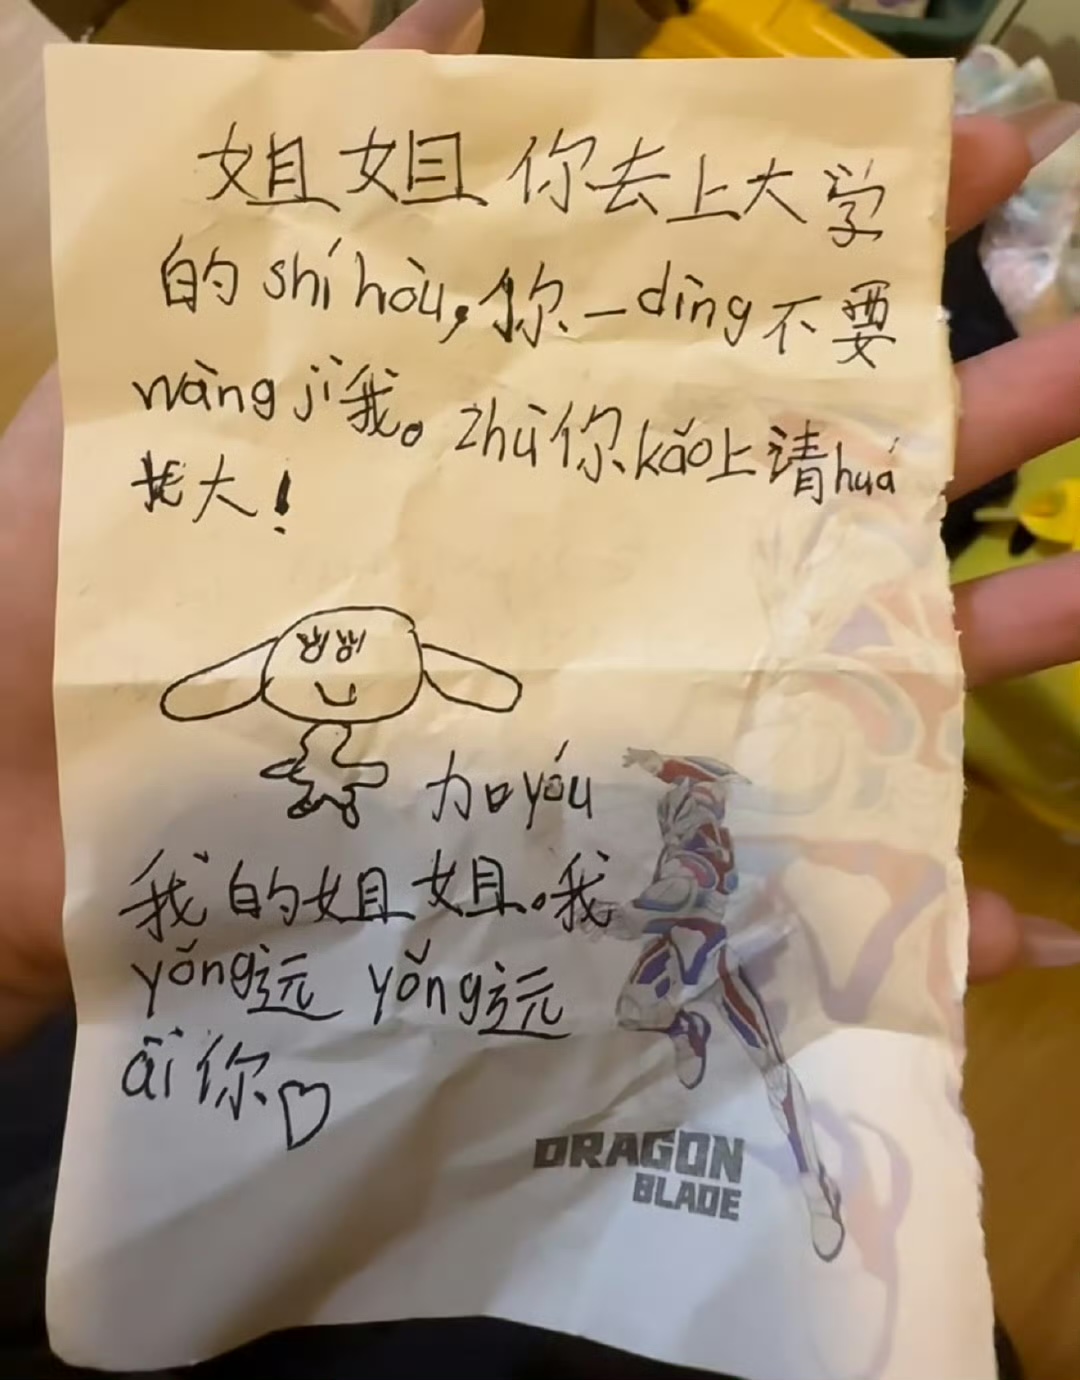 姐姐 你去上大学
的 shí hòu，你一dìng不要
wàng jì我。zhù你kǎo上请huá
北大！
加yóu
我的姐姐。我
yǒng远 yǒng远
ài 你
DRAGON
BLADE